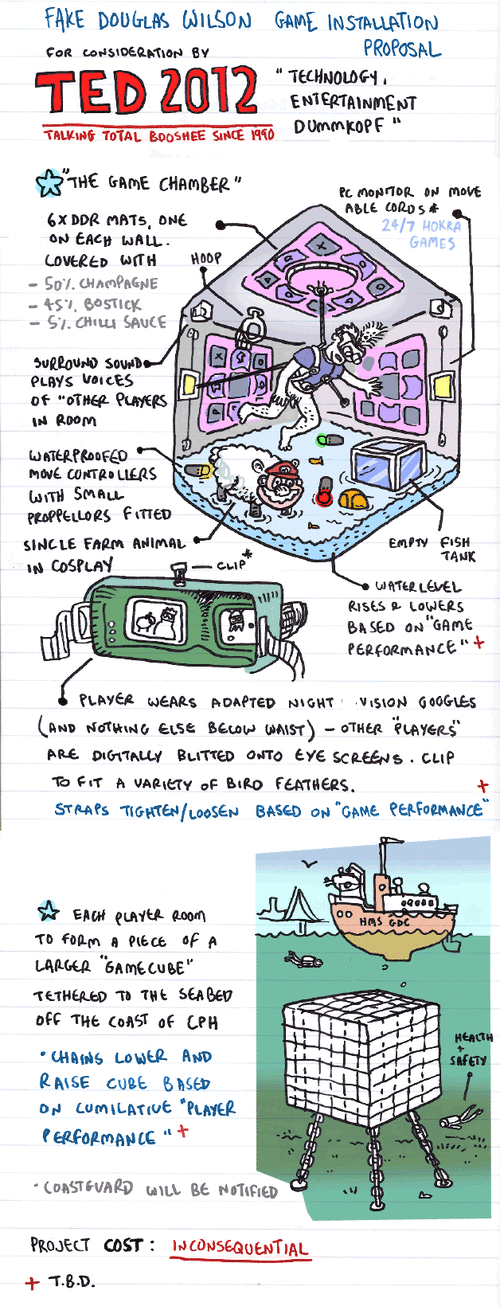 FAKE DOUGLAS WILSON GAME INSTALLATION
PROPOSAL
FOR CONSIDERATION BY
TED 2012
TALKING TOTAL BOOSHEE SINCE 1990
"TECHNOLOGY,
ENTERTAINMENT
DUMMKOPF"
"THE GAME CHAMBER"
6X DDR MATS, ONE
ON EACH WALL.
COVERED WITH
- 50% CHAMPAGNE
- 45% BOSTICK
- 5% CHILLI SAUCE
HOOP
PC MONITOR ON MOVE
ABLE CORDS*
24/7 HOKRA
GAMES
SURROUND SOUND
PLAYS VOICES
OF "OTHER PLAYERS
IN ROOM
WATERPROOFED
MOVE CONTROLLERS
WITH SMALL
PROPPELLORS FITTED
SINGLE FARM ANIMAL
IN COSPLAY
EMPTY FISH
TANK
CLIP*
WATER LEVEL
RISES & LOWERS
BASED ON "GAME
PERFORMANCE" +
PLAYER WEARS ADAPTED NIGHT VISION GOOGLES
(AND NOTHING ELSE BELOW WAIST) - OTHER "PLAYERS"
ARE DIGITALLY BLITTED ONTO EYE SCREENS. CLIP
TO FIT A VARIETY OF BIRD FEATHERS.
+
STRAPS TIGHTEN/LOOSEN BASED ON "GAME PERFORMANCE"
EACH PLAYER ROOM
TO FORM A PIECE OF A
LARGER "GAMECUBE"
TETHERED TO THE SEABED
OFF THE COAST OF CPH
• CHAINS LOWER AND
RAISE CUBE BASED
ON CUMILATIVE "PLAYER
PERFORMANCE" +
HMS GDC
HEALTH
+
SAFETY
• COASTGUARD WILL BE NOTIFIED
PROJECT COST: INCONSEQUENTIAL
+ T.B.D.